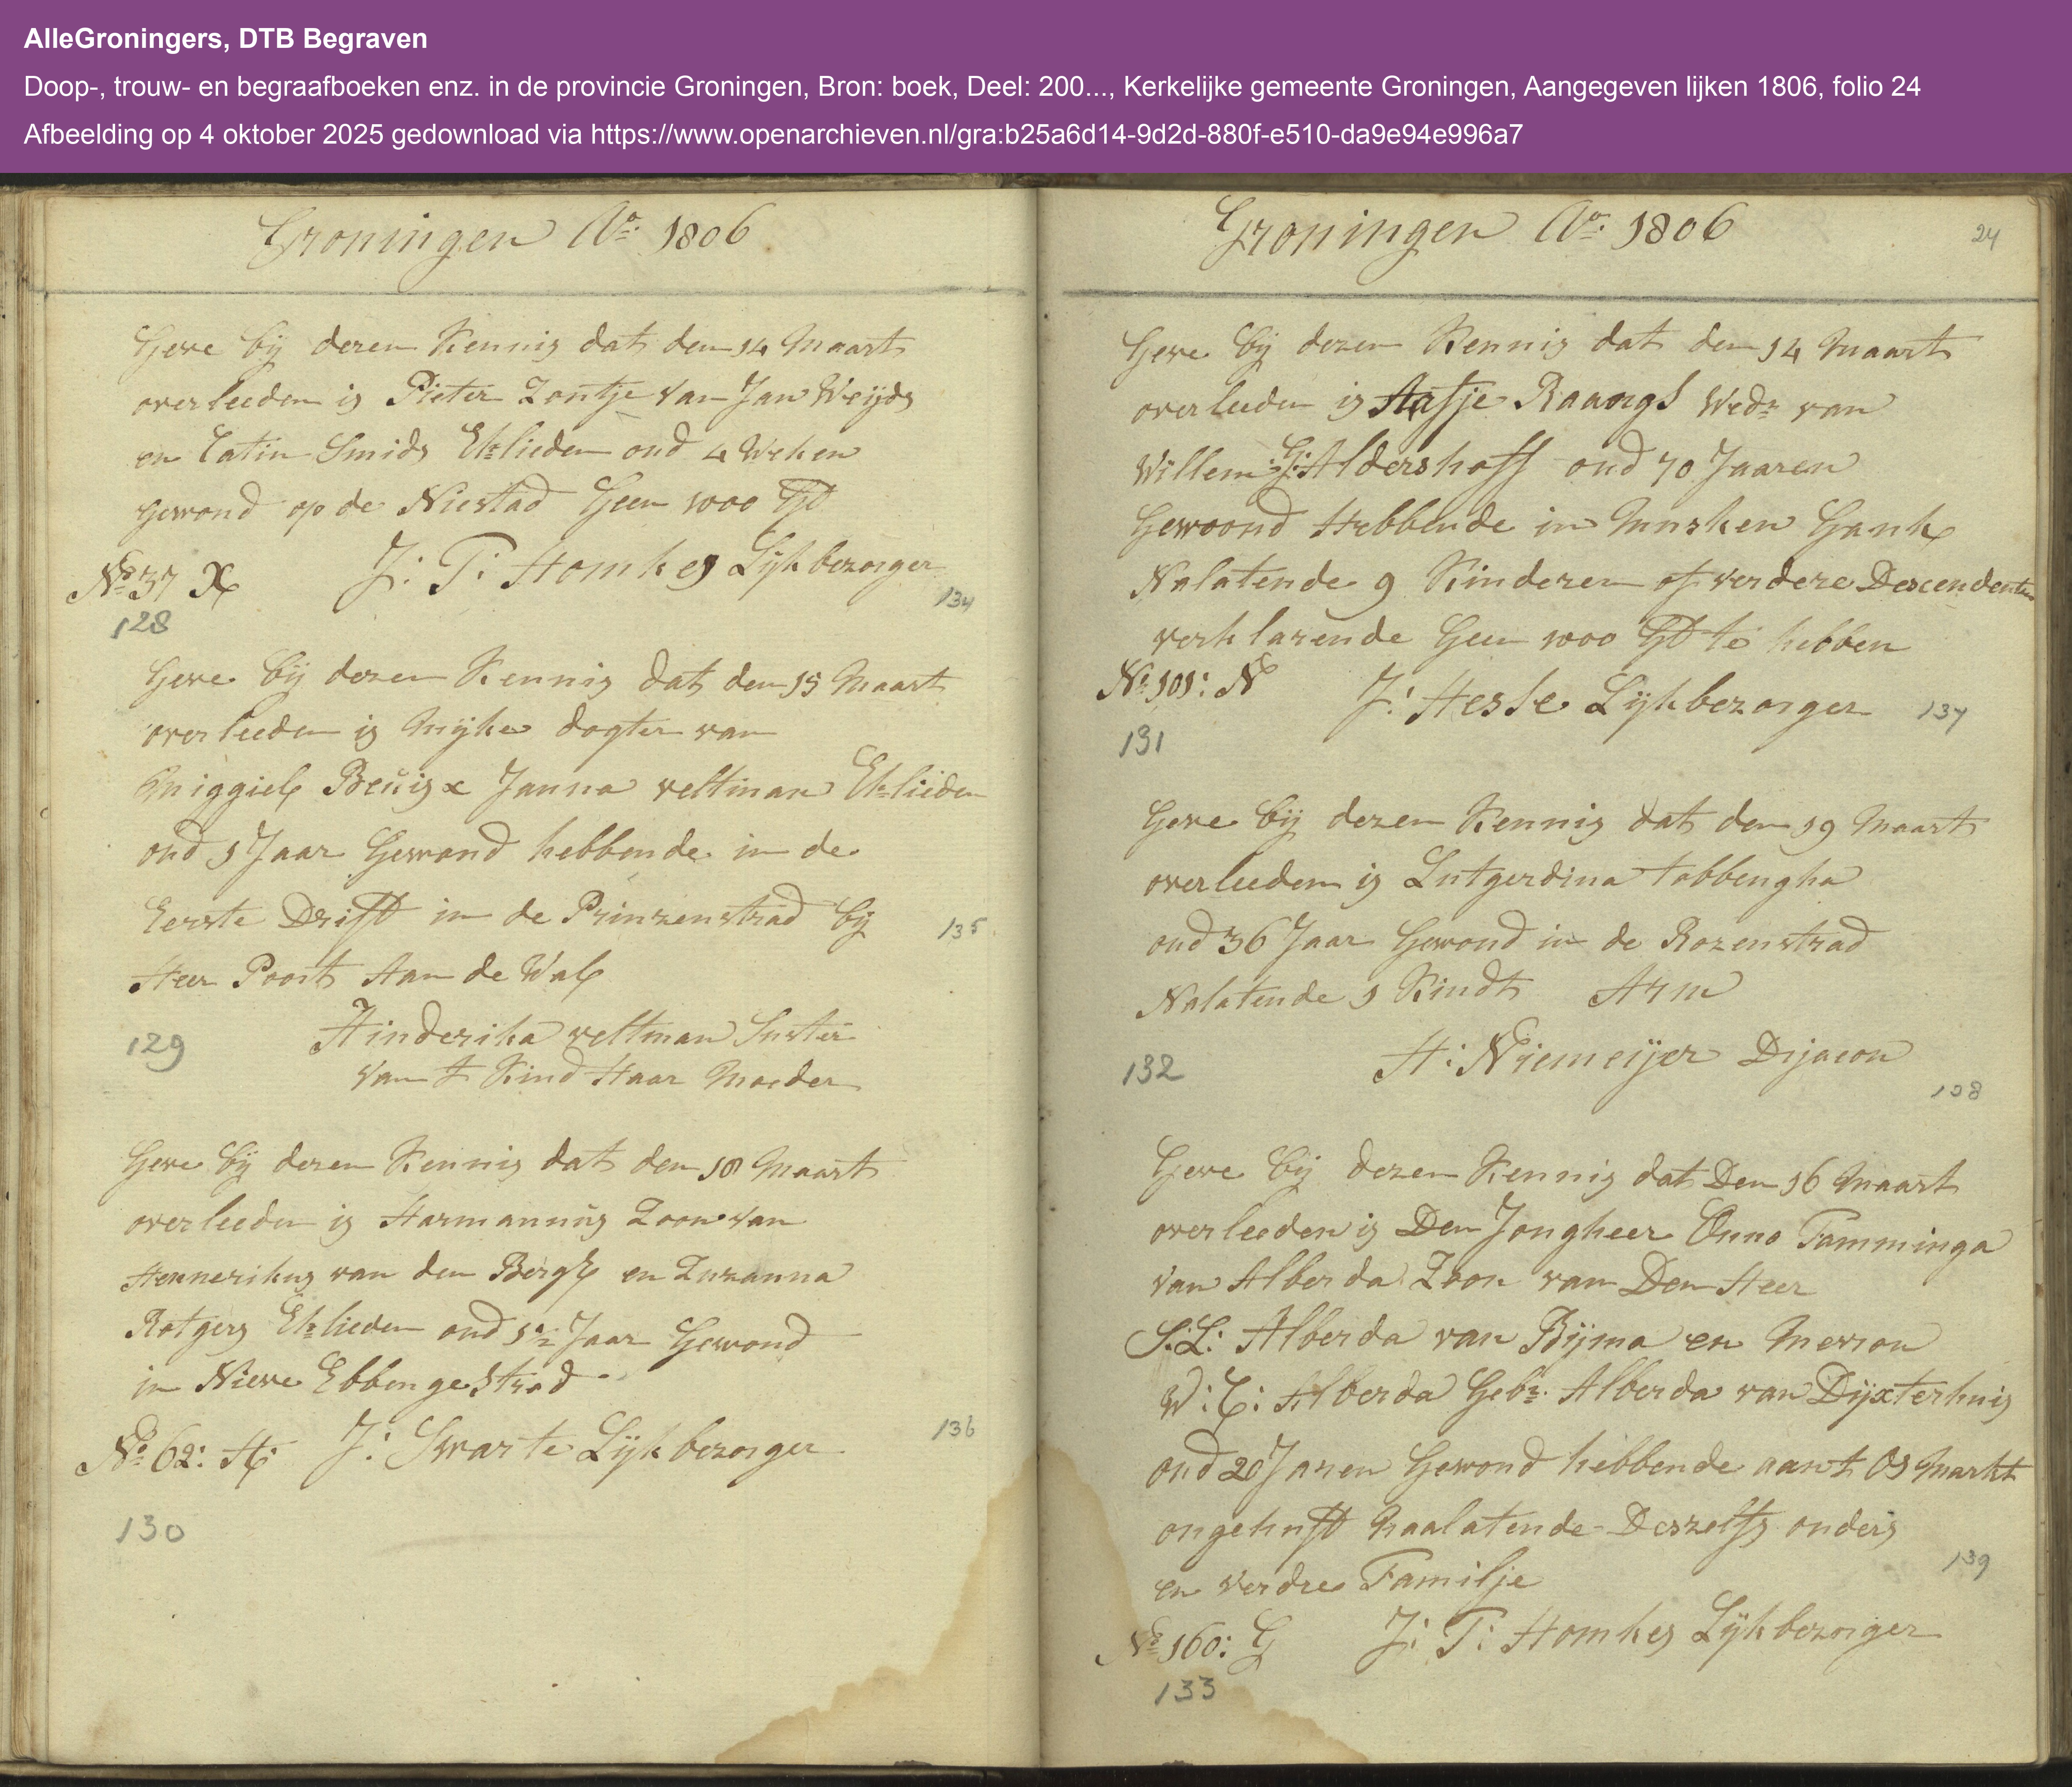 AlleGroningers, DTB Begraven
Doop-, trouw- en begraafboeken enz. in de provincie Groningen, Bron: boek, Deel: 200..., Kerkelijke gemeente Groningen, Aangegeven lijken 1806, folio 24
Afbeelding op 4 oktober 2025 gedownload via https://www.openarchieven.nl/gra:b25a6d14-9d2d-880f-e510-da9e94e996a7
Groningen Ao: 1806
Geve bij deren Kennis dat den 14 Maart
overleeden is Pieter Zontje van Jan Weijds
en Catin Smids Ehlieden oud 4 Weken
gewond op de Niestad Geen 1000 Gl
No 37 X J: T: Homkes Lijkbezorger
134
128
Geve bij dezen Kennis dat den 15 Maart
overleeden is Mijke dogter van
Miggiel Beuis x Janna veltman Ehlieden
oud 1 Jaar Gewond hebbende in de
Eerste Drift in de Prinzenstrad bij
135
Heer Poort Aan de Wal
129 Hinderika veltman Suster
van t Kind Haar Moeder
Geve bij dezen Kennis dat den 18 Maart
overleeden is Harmannus Zoon van
Hennerikus van den Berg en Zuzanna
Rotgers Ehlieden oud 1½ Jaar Gewond
in Nieve Ebbenge Strad
No 62: H: J: Swarte Lijkbezorger
136
130
Groningen Ao: 1806
24
Geve bij dezen Kennis dat den 14 Maart
overleeden is Aafje Raangs Wedr van
Willem G: Aldershoff oud 70 Jaaren
Gewoond Hebbende in Munsken Gank
Nalatende 9 Kinderen of verdere Descendenten
verklarende Geen 1000 Gl te hebben
No 101: N J: Hesse Lijkbezorger
137
131
Geve bij dezen Kennis dat den 19 Maart
overleeden is Lutgerdina tabbengha
oud 36 Jaar Gewond in de Rozenstrad
Nalatende 1 Kindt Arm
132 H: Niemeijer Dijacon
138
Geve bij dezen Kennis dat Den 16 Maart
overleeden is Den Jongheer Onno Tamminga
van Alberda Zoon van Den Heer
S: L: Alberda van Bijma en Mevrou
W: C: Alberda Gebr: Alberda van Dijxterhuis
oud 20 Jaren Gewond hebbende aan t Os Markt
ongehuft Naalatende Deszelfs ouders
en verdre Familje
139
No 160: G J: T: Homkes Lijkbezorger
133